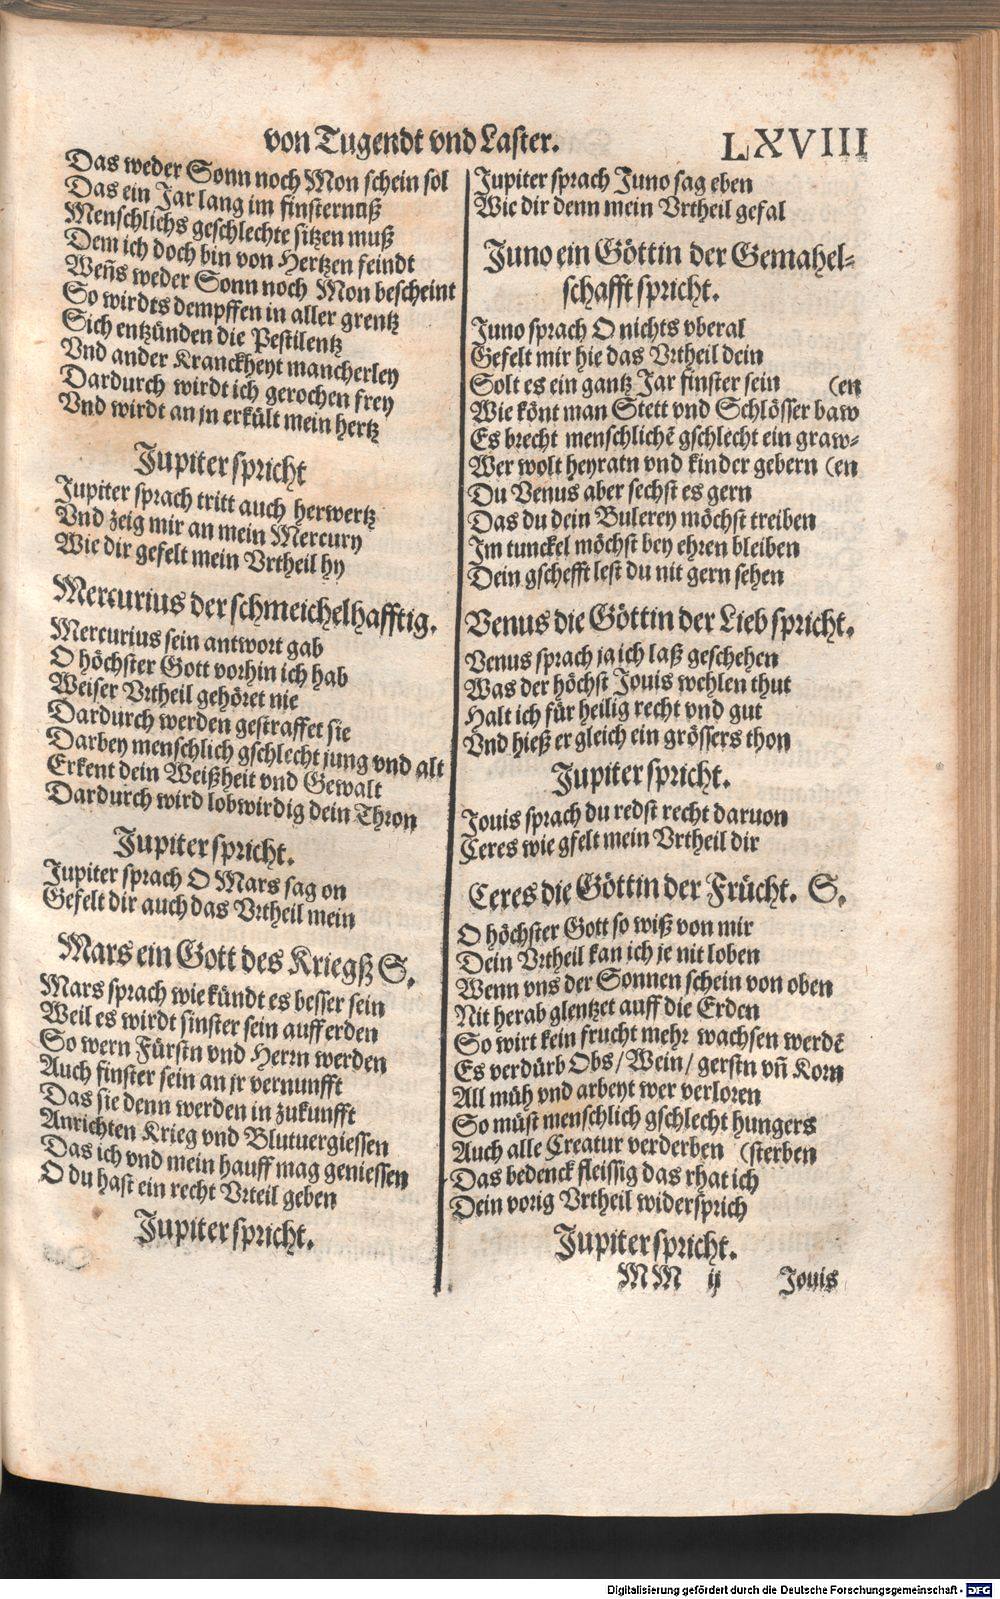 von Tugendt vnd Laster. LXVIII
Das weder Sonn noch Mon schein sol
Das ein Jar lang im finsternuß
Menschlichs geschlechte sitzen muß
Dem ich doch bin von Hertzen feindt
Weñs weder Sonn noch Mon bescheint
So wirdts dempffen in aller grentz
Sich entzünden die Pestilentz
Vnd ander Kranckheyt mancherley
Dardurch wirdt ich gerochen frey
Vnd wirdt an jn erkült mein hertz
Jupiter spricht
Jupiter sprach tritt auch herwertz
Vnd zeig mir an mein Mercury
Wie dir gefelt mein Vrtheil hy
Mercurius der schmeichelhafftig.
Mercurius sein antwort gab
O höchster Gott vorhin ich hab
Weiser Vrtheil gehöret nie
Dardurch werden gestraffet sie
Darbey menschlich gschlecht jung vnd alt
Erkent dein Weißheit vnd Gewalt
Dardurch wird lobwirdig dein Thron
Jupiter spricht.
Jupiter sprach O Mars sag on
Gefelt dir auch das Vrtheil mein
Mars ein Gott des Kriegß S.
Mars sprach wie kündt es besser sein
Weil es wirdt finster sein auff erden
So wern Fürstn vnd Herrn werden
Auch finster sein an jr vernunfft
Das sie denn werden in zukunfft
Anrichten Krieg vnd Blutuergiessen
Das ich vnd mein hauff mag geniessen
O du hast ein recht Vrteil geben
Jupiter spricht.
Jupiter sprach Juno sag eben
Wie dir denn mein Vrtheil gefal
Juno ein Göttin der Gemahel-
schafft spricht.
Juno sprach O nichts vberal
Gefelt mir hie das Vrtheil dein
Solt es ein gantz Jar finster sein (en
Wie könt man Stett vnd Schlösser baw
Es brecht menschlichē gschlecht ein graw-
Wer wolt heyratn vnd kinder gebern (en
Du Venus aber sechst es gern
Das du dein Bulerey möchst treiben
Im tunckel möchst bey ehren bleiben
Dein gschefft lest du nit gern sehen
Venus die Göttin der Lieb spricht.
Venus sprach ja ich laß geschehen
Was der höchst Jouis wehlen thut
Halt ich für heilig recht vnd gut
Vnd hieß er gleich ein grössers thon
Jupiter spricht.
Jouis sprach du redst recht daruon
Ceres wie gfelt mein Vrtheil dir
Ceres die Göttin der Frücht. S.
O höchster Gott so wiß von mir
Dein Vrtheil kan ich je nit loben
Wenn vns der Sonnen schein von oben
Nit herab glentzet auff die Erden
So wirt kein frucht mehr wachsen werdē
Es verdürb Obs / Wein / gerstn vñ Korn
All müh vnd arbeyt wer verloren
So müst menschlich gschlecht hungers
Auch alle Creatur verderben (sterben
Das bedenck fleissig das rhat ich
Dein vorig Vrtheil widersprich
Jupiter spricht.
MM ij Jouis
Digitalisierung gefördert durch die Deutsche Forschungsgemeinschaft - DFG